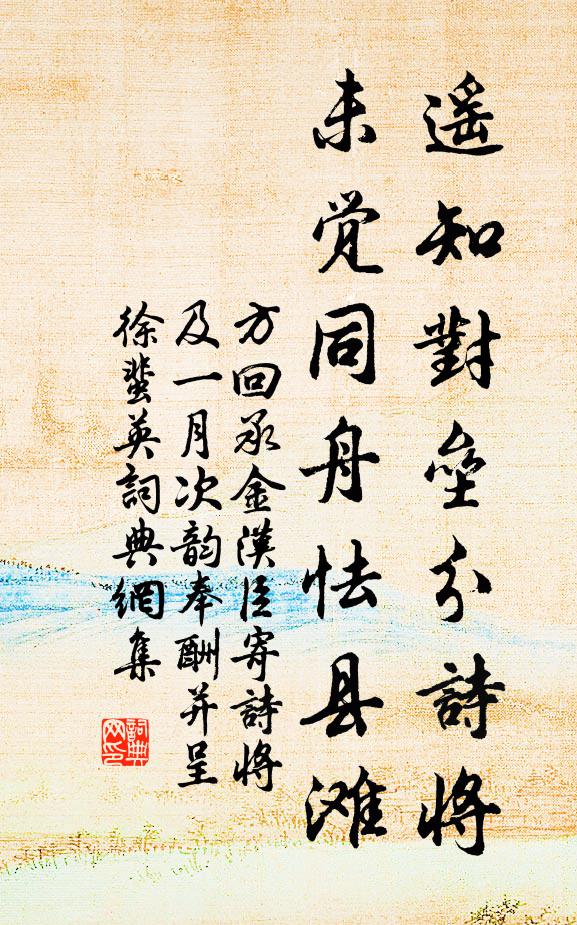 遥知對垒分詩將
未觉同舟怯县滩
方回承金漢臣寄詩將
及一月次韵奉酬并呈
徐蜚英詞典網集
詞典网印